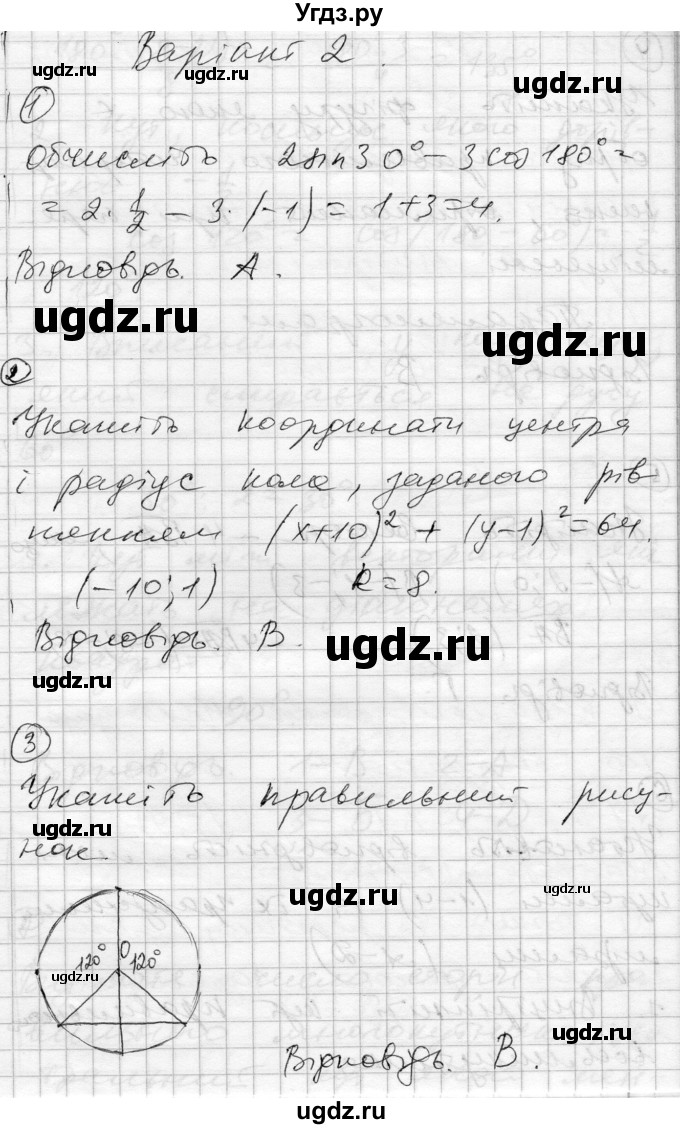 Угдз.ру
Варіант 2.
ugdz.ru ugdz.ru
1
Обчисліть 2sin30° - 3cos180° =
= 2 · 1/2 - 3 · (-1) = 1+3=4.
Відповідь. А.
ugdz.ru ugdz.ru
2
Укажіть координати центра
і радіус кола, заданого рів-
нянням (x+10)² + (y-1)² = 64.
(-10; 1) R=8.
Відповідь. В.
ugdz.ru
ugdz.ru
3
Укажіть правильний рису-
нок.
ugdz.ru ugdz.ru
120° O 120°
ugdz.ru
ugdz.ru
Відповідь. В.
ugdz.ru